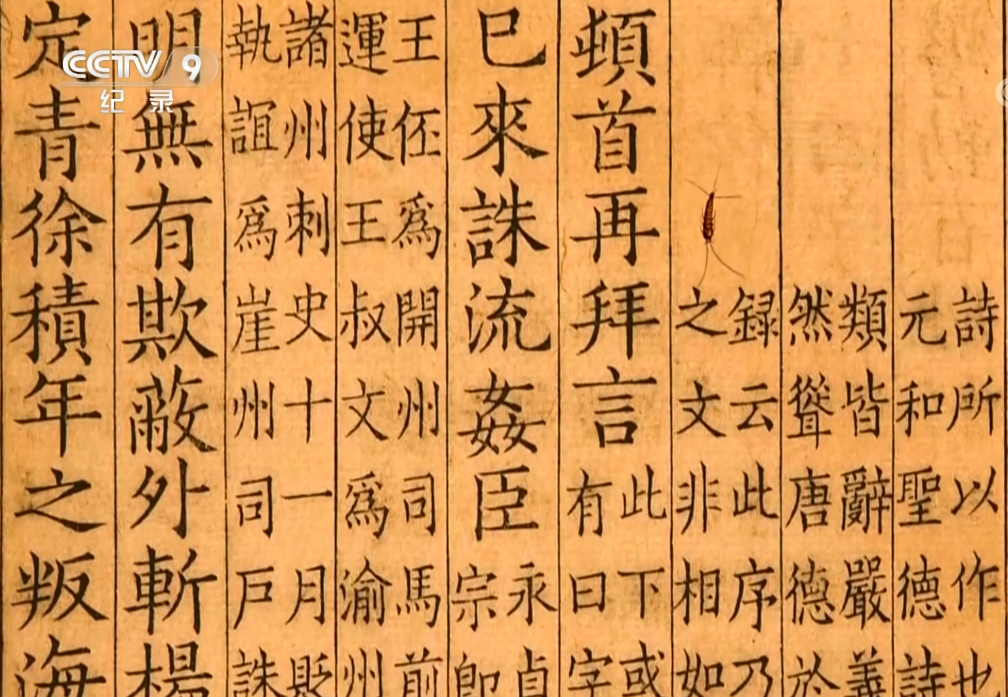 詩所以作也
元和聖德詩
類皆辭嚴義
然聳唐德於
録云此序乃
之文非相如
頓首再拜言
此下或
有曰字
巳來誅流姦臣
永貞
宗即
王伾爲開州司馬前
運使王叔文爲渝州
諸州刺史十一月貶
執誼爲崖州司戶誅
明無有欺蔽外斬楊
定青徐積年之叛海
CCTV 9
纪录